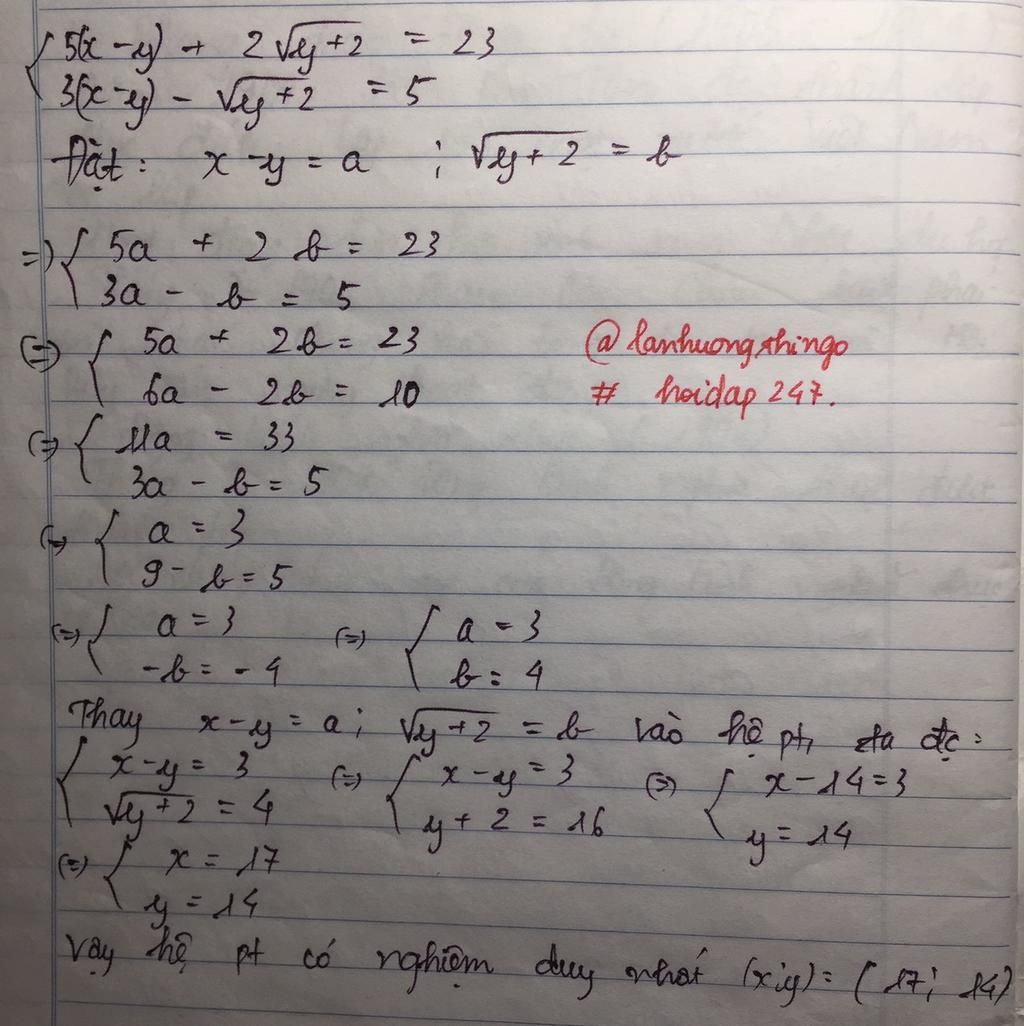 5(x - y) + 2√(y+2) = 23
3(x-y) - √(y+2) = 5
Đặt: x - y = a ; √(y+2) = b
=> 5a + 2b = 23
3a - b = 5
(=) 5a + 2b = 23
6a - 2b = 10
@lanhuongthingo
# hoidap247.
(=) 11a = 33
3a - b = 5
(=) a = 3
9 - b = 5
(=) a = 3 (=) a = 3
-b = -4 b = 4
Thay x-y = a; √(y+2) = b vào hệ pt, ta đc:
x-y = 3 (=) x-y = 3 (=) x-14=3
√(y+2) = 4 y+2 = 16 y = 14
(=) x = 17
y = 14
Vậy hệ pt có nghiệm duy nhất (x;y) = (17; 14)